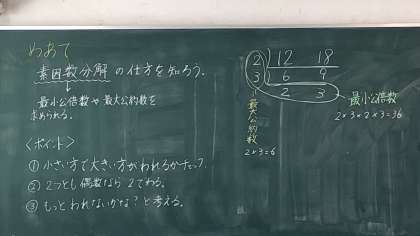 めあて
素因数分解の仕方を知ろう.
最小公倍数や最大公約数を
求められる.
<ポイント>
① 小さい方で大きい方がわれるかチェック.
② 2つとも偶数なら 2でわる.
③ もっとわれないかな?と考える.
2 12 18
3 6 9
2 3
最大公約数
2×3=6
最小公倍数
2×3×2×3=36